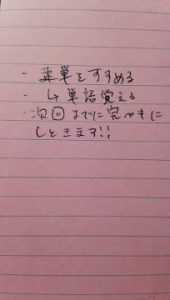 ・英単をすすめる
・4単語覚える
・次回までに完ぺきに
しときます!!